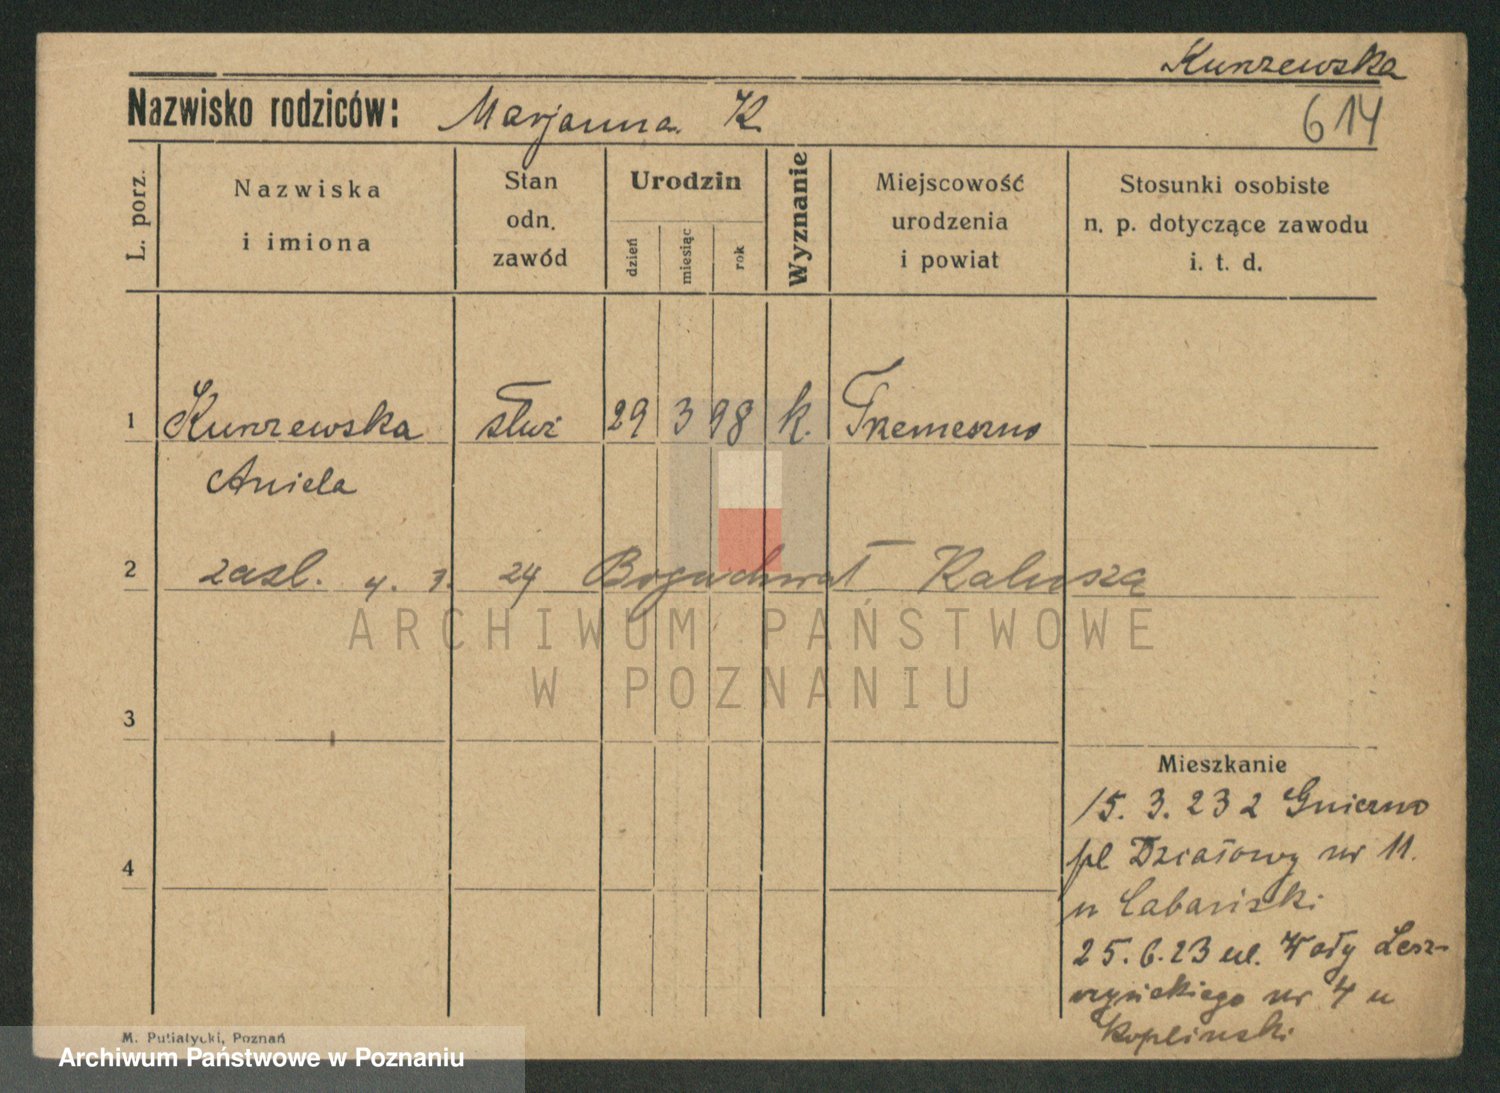 Kunzewska
Nazwisko rodziców: Marjanna K
614
L. porz.
Nazwiska
i imiona
Stan
odn.
zawód
Urodzin
dzień
miesiąc
rok
Wyznanie
Miejscowość
urodzenia
i powiat
Stosunki osobiste
n. p. dotyczące zawodu
i. t. d.
1 Kunzewska służ 29 3 98 k. Trzemeszno
Aniela
2 zaśl. 4. 7. 24 Bogachwał Kalusza
ARCHIWUM PAŃSTWOWE
W POZNANIU
3
Mieszkanie
15. 3. 23 z Gniezno
pl Działowy nr 11.
4
u
25. 6. 23 ul. Wały Lesz-
czyńskiego nr 4 u
Koplinski
M. Putiatycki, Poznań
Archiwum Państwowe w Poznaniu